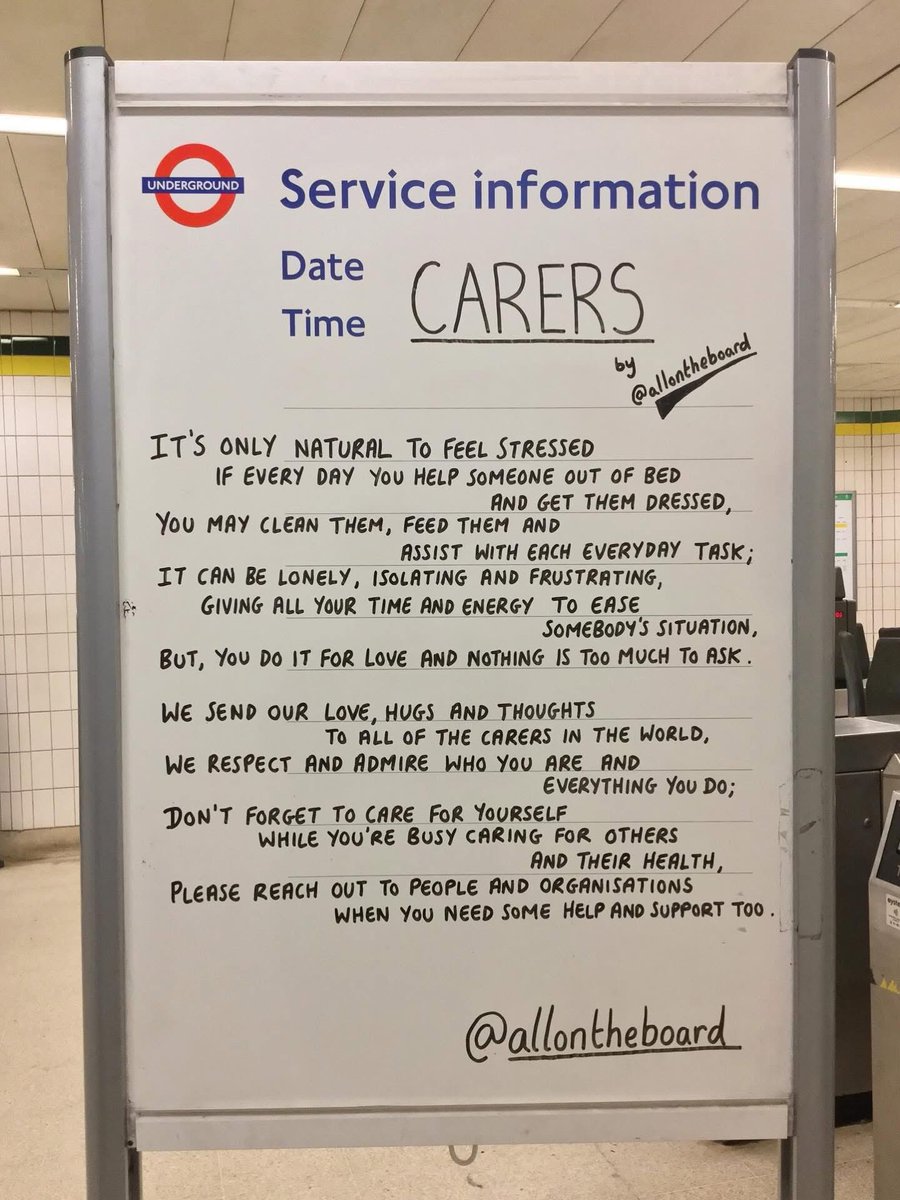 UNDERGROUND
Service information
Date
Time
CARERS
by
@allontheboard
IT'S ONLY NATURAL TO FEEL STRESSED
IF EVERY DAY YOU HELP SOMEONE OUT OF BED
AND GET THEM DRESSED,
YOU MAY CLEAN THEM, FEED THEM AND
ASSIST WITH EACH EVERYDAY TASK;
IT CAN BE LONELY, ISOLATING AND FRUSTRATING,
GIVING ALL YOUR TIME AND ENERGY TO EASE
SOMEBODY'S SITUATION,
BUT, YOU DO IT FOR LOVE AND NOTHING IS TOO MUCH TO ASK.
WE SEND OUR LOVE, HUGS AND THOUGHTS
TO ALL OF THE CARERS IN THE WORLD,
WE RESPECT AND ADMIRE WHO YOU ARE AND
EVERYTHING YOU DO;
DON'T FORGET TO CARE FOR YOURSELF
WHILE YOU'RE BUSY CARING FOR OTHERS
AND THEIR HEALTH,
PLEASE REACH OUT TO PEOPLE AND ORGANISATIONS
WHEN YOU NEED SOME HELP AND SUPPORT TOO.
@allontheboard